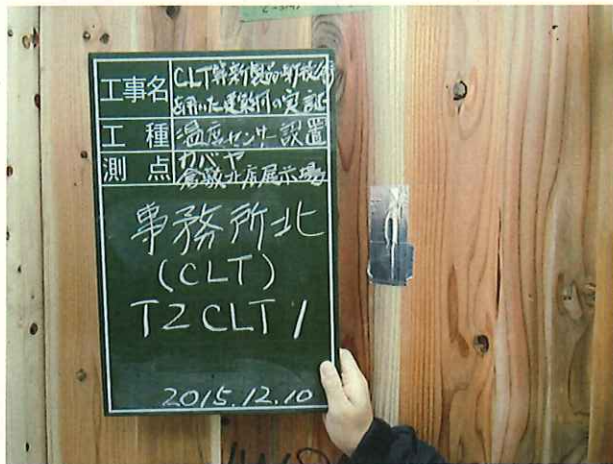 工事名
CLT等新製品・新技術
を用いた建築物の実証
工種
温度センサー設置
測点
カバヤ
倉敷北店展示場
事務所北
(CLT)
T2CLT1
2015.12.10